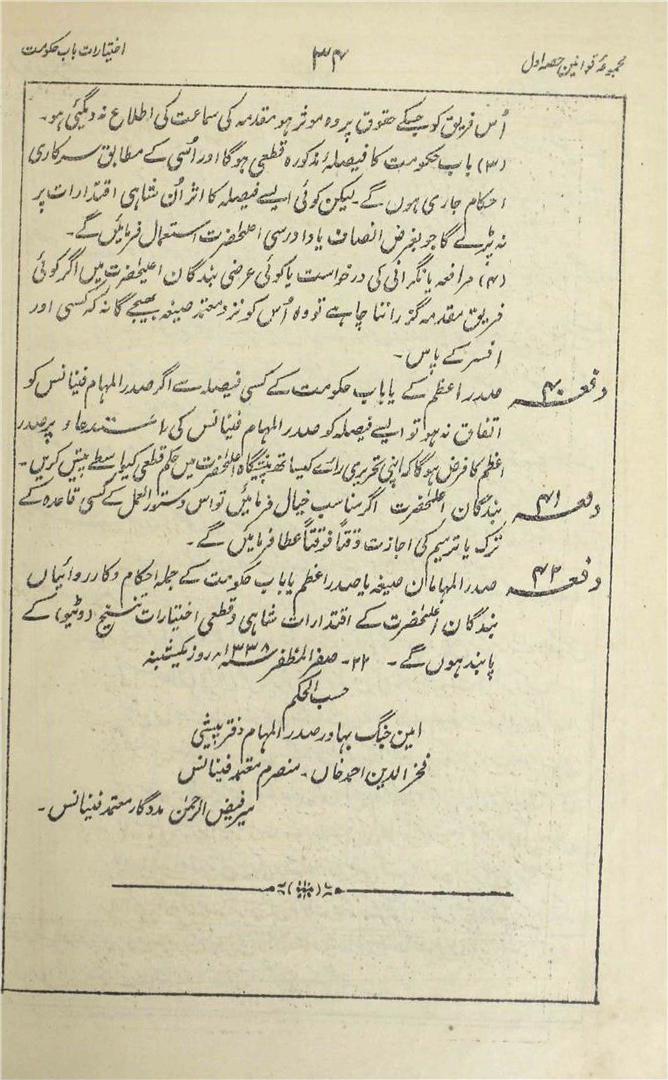 مجموعۂ قوانین حصہ اول
۳۴
اختیارات باب حکومت
اُس فریق کو جسکے حقوق پر وہ موثر ہو مقدمہ کی سماعت کی اطلاع نہ دیگئی ہو۔
(۳) باب حکومت کا فیصلۂ مذکورہ قطعی ہوگا اور اُسی کے مطابق سرکاری
احکام جاری ہوں گے۔ لیکن کوئی ایسے فیصلہ کا اثر اُن شاہی اقتدارات پر
نہ پڑے گا جو بغرض انصاف یا دادرسی اعلٰحضرت استعمال فرمائیں گے۔
(۴) مرافعہ یا نگرانی کی درخواست یا کوئی عرضی بندگان اعلیٰحضرت میں اگر کوئی
فریق مقدمہ گزراننا چاہے تو وہ اُس کو نزد معتمد صیغہ بھیجے گا نہ کہ کسی اور
افسر کے پاس۔
دفعہ ۴۰ صدر اعظم کے یا باب حکومت کے کسی فیصلہ سے اگر صدر المہام فینانس کو
اتفاق نہ ہو تو ایسے فیصلہ کو صدر المہام فینانس کی استدعاء پر صدر
اعظم کا فرض ہوگا کہ اپنی تحریری رائے کیساتھ پیشگاہ اعلٰحضرت میں حکم قطعی کیواسطے پیش کریں۔
دفعہ ۴۱ بندگان اعلٰحضرت اگر مناسب خیال فرمائیں تو اس دستور العمل کے کسی قاعدہ کے
ترک یا ترمیم کی اجازت وقتاً فوقتاً عطا فرمائیں گے۔
دفعہ ۴۲ صدر المہامان صیغہ یا صدر اعظم یا باب حکومت کے جملہ احکام و کارروائیاں
بندگان اعلٰحضرت کے اقتدارات شاہی و قطعی اختیارات تنسیخ (وٹیو) کے
پابند ہوں گے۔ ۲۲۔ صفر المظفر ۱۳۳۸ھ روز یکشنبہ
حسب الحکم
امین جنگ بہادر صدر المہام دفتر پیشی
فخر الدین احمد خاں۔ منصرم معتمد فینانس
میر فیض الرحمٰن مددگار معتمد فینانس۔